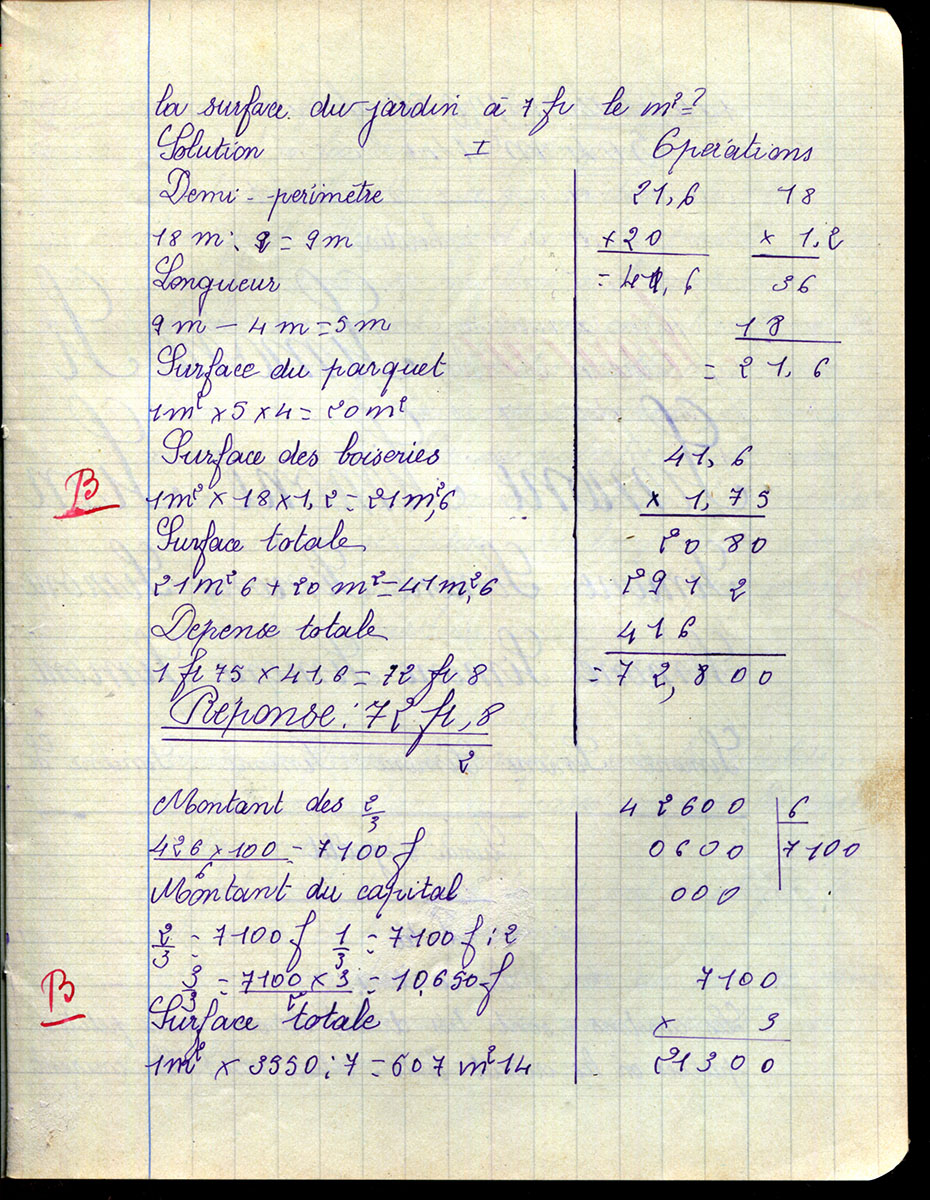 la surface du jardin à 7 fr le m² = ?
Solution I Opérations
Demi-périmètre
18 m : 2 = 9m
Longueur
9 m — 4 m = 5m
Surface du parquet
1m² × 5 × 4 = 20m²
Surface des boiseries
B
1m² × 18 × 1,2 = 21m²,6
Surface totale
21m² 6 + 20 m² = 41m²,6
Dépense totale
1 fr 75 × 41,6 = 72 fr 8
Réponse : 72 fr, 8
21,6 18
+ 20 × 1,2
= 41,6 36
18
= 21,6
41,6
× 1,75
2080
2912
416
= 72,800
2
Montant des 2/3
426 × 100 / 6 = 7100 f
Montant du capital
2/3 = 7100 f 1/3 = 7100 f : 2
3/3 = 7100 × 3 / 2 = 10,650 f
B
Surface totale
1m² × 3550 : 7 = 607 m² 14
42600 | 6
0600 | 7100
000
7100
× 3
21300